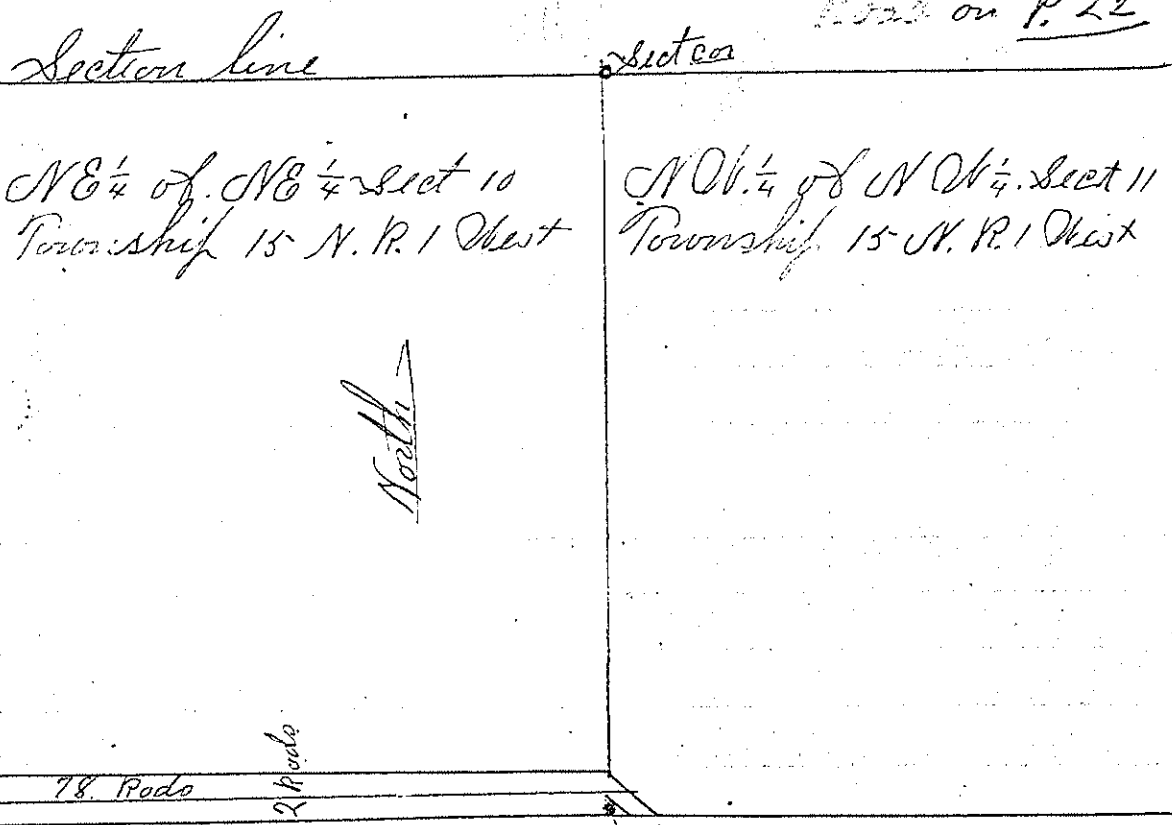 Road on P. 22
Section line
Sect cor
NE 1/4 of NE 1/4 Sect 10
Township 15 N. R. 1 West
NW. 1/4 of NW 1/4. Sect 11
Township 15 N. R. 1 West
North
78. Rods
2 Rods